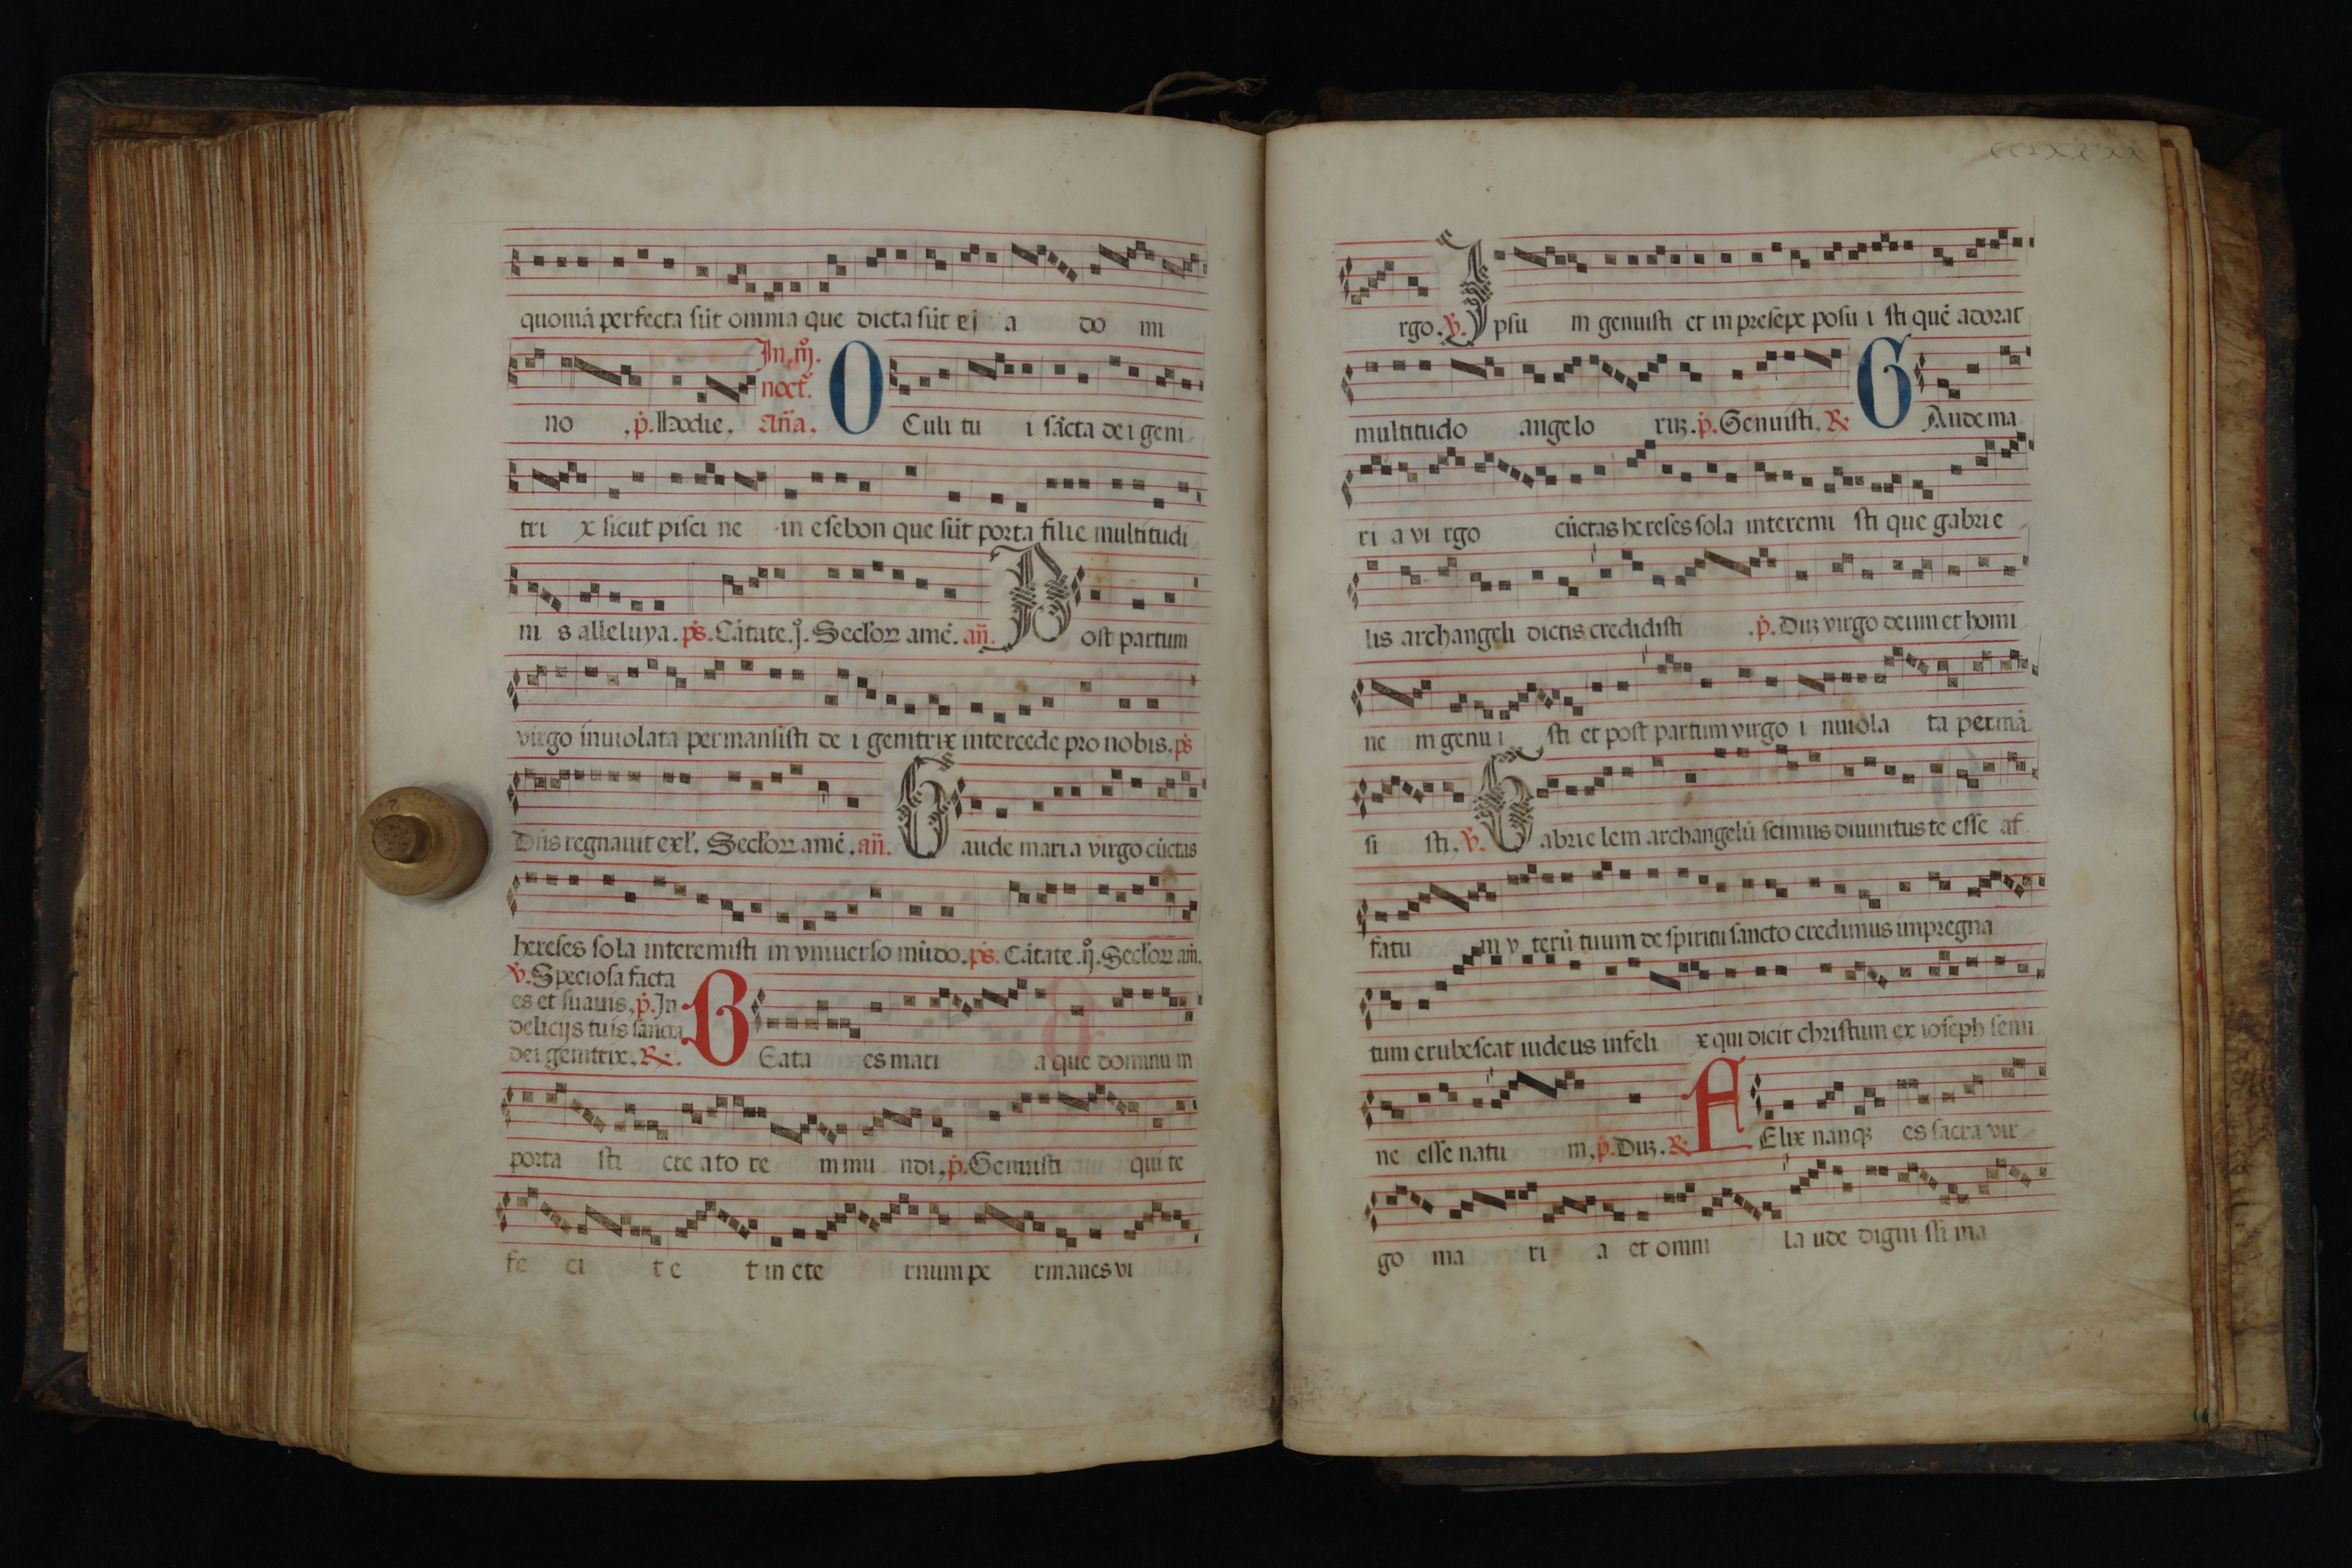 quoniã perfecta sũt omnia que dicta sũt ei a do mi
In. iij.
noct̃.
no .p̃. Hodie. Añã. O Culi tu i sãcta dei geni
tri x sicut pisci ne in esebon que sũt porta filie multitudi
ni s alleluya. ps̃. Cãtate. j̊. Secl'oꝝ amẽ. añ. Post partum
virgo inuiolata permansisti de i genitrix intercede pro nobis. ps̃
Dñs regnauit exl'. Secl'oꝝ amẽ. añ. Gaude maria virgo cũctas
hereses sola interemisti in vniuerso mũdo. ps̃. Cãtate. ij̊. Secl'oꝝ am̃.
℣. Speciosa facta
es et suauis. p̃. In
delicijs tuis sancta
dei genitrix. ℞. BEata es mari a que dominu m
porta sti cre ato re m mu ndi. p̃. Genuisti qui te
fe ci t e t in ete rnum pe rmanes vi
rgo. ℣. Ipsu m genuisti et in presepe posu i sti quẽ adorat
multitudo angelo ruꝫ. p̃. Genuisti. ℞ GAude ma
ri a vi rgo cũctas hereses sola interemi sti que gabrie
lis archangeli dictis credidisti .p̃. Duꝫ virgo deum et homi
ne m genu i sti et post partum virgo i nuiola ta permã
si sti. ℣. Gabrie lem archangelũ scimus diuinitus te esse af
fatu m v terũ tuum de spiritu sancto credimus impregna
tum erubescat iudeus infeli x qui dicit christum ex ioseph semi
ne esse natu m. p̃. Duꝫ. ℞ FElix nanqꝫ es sacra vir
go ma ri a et omni la ude digni ssi ma